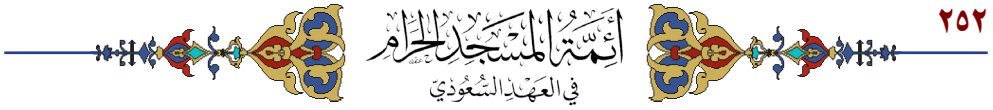 ٢٥٢
أَئِمَّةُ المَسْجِدِ الحَرَامِ
فِي العَهْدِ السُّعُودِيّ